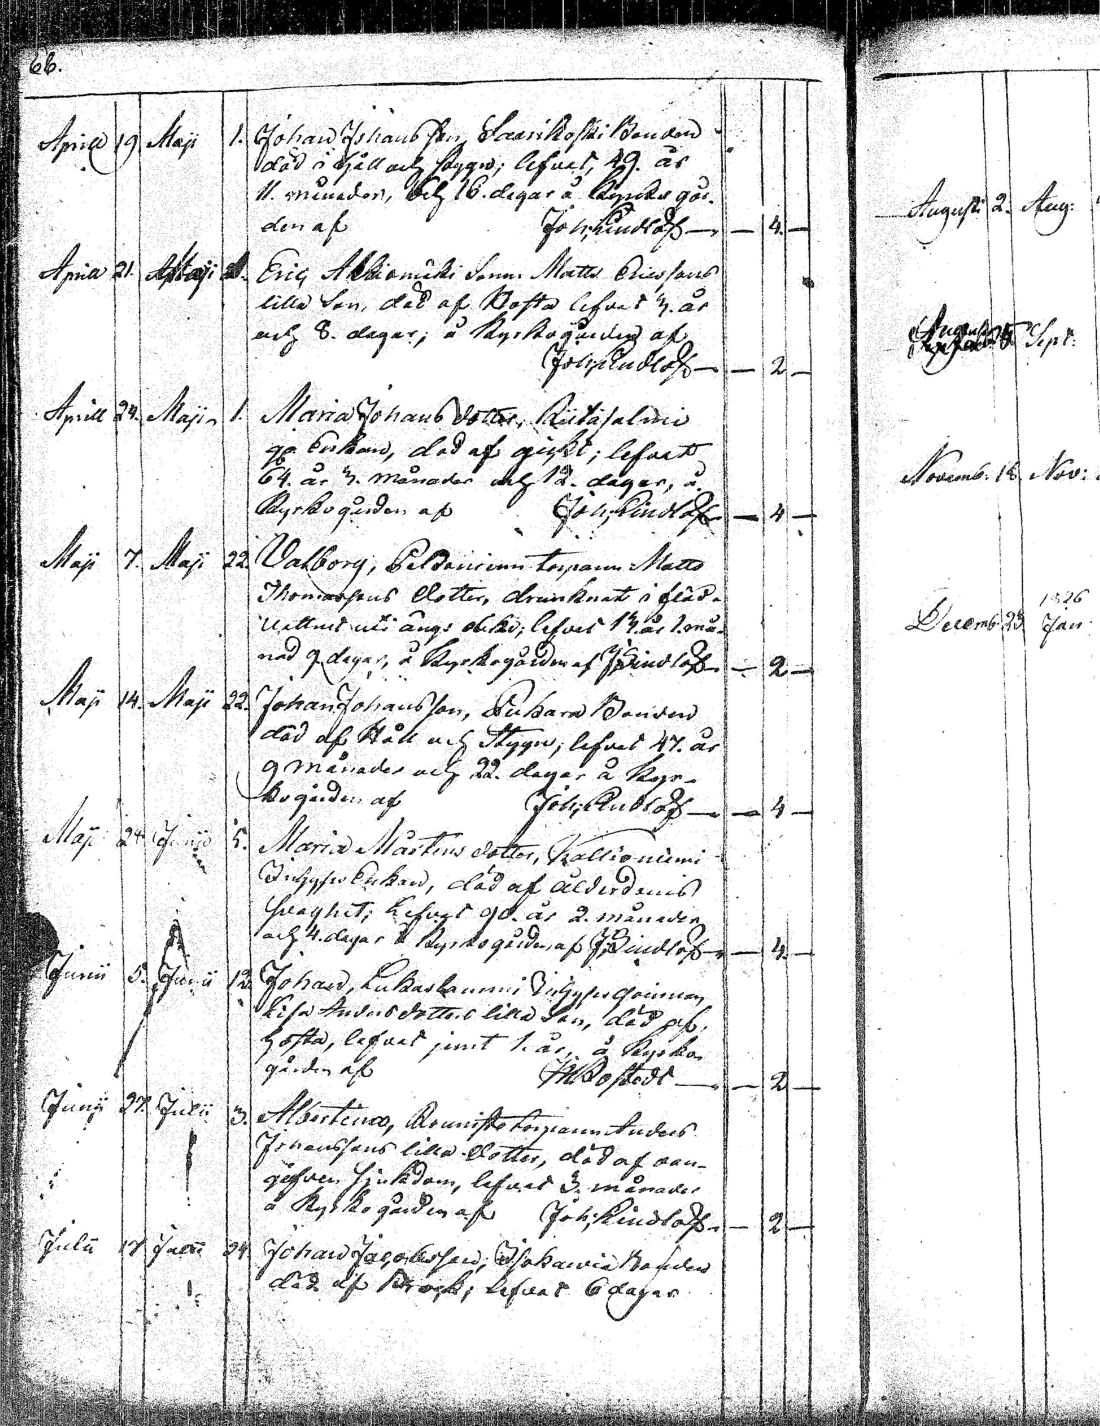 66.
Aprill 19 Maji 1. Johan Johansson, Saarikoski Bonden
död i håll och stygn; lefvat, 49. år
11. månader, och 16. dagar å Kyrko går-
den af Joh, Lindlöf — 4 —
Aprill 21. Maji Eric Matts Ericssons
lilla Son, död af Hosta lefvat 3. år
och 8. dagar; å Kyrkogården af
Joh, Lindlöf — 2 —
Aprill 24. Maji 1. Maria Johans dotter, Riitasalmi
Enkan, död af gikt; lefvat
64. år 3. månader och 12. dagar, å
Kyrkogården af Joh, Lindlöf — 4 —
Maji 7. Maji 22. Valborg, torparn Matts
Thomassons Dotter, drunknat i flod-
vattnet uti ängs lefvat 13. år 1. må-
nad 9 dagar, å Kyrkogården af Lindlöf — 2 —
Maji 14. Maji 22. Johan Johansson, Bonden
död af Håll och Stygn; lefvat 47. år
9 månader och 22. dagar å Kyr-
kogården af Joh, Lindlöf — 4
Maji 24 Junii 5. Maria Mårtens dotter, Kallioniemi
Inhyses Enkan, död af ålderdoms
svaghet; Lefvat 90. år 2. månader
och 4. dagar å Kyrkogården af Lindlöf — 4 —
Junii 5. Junii 12. Johan, Inhyses qvinnan
Lisa Anders dotters lilla Son, död af
hosta, lefvat jemt 1. år, å Kyrko-
gården af — 2 —
Junii 27. Julii 3. Albertina, torparn Anders
Johanssons lilla Dotter, död af oan-
gifven sjukdom, lefvat 3. månader
å Kyrkogården af Joh, Lindlöf — 2 —
Julii 17. Julii 24. Johan Jacobsson, Bonden
död af Bråck; lefvat 6 dagar
Augusti 2. Aug:
Sept:
Novemb. 18. Nov:
1826
Decemb. 23 Jan